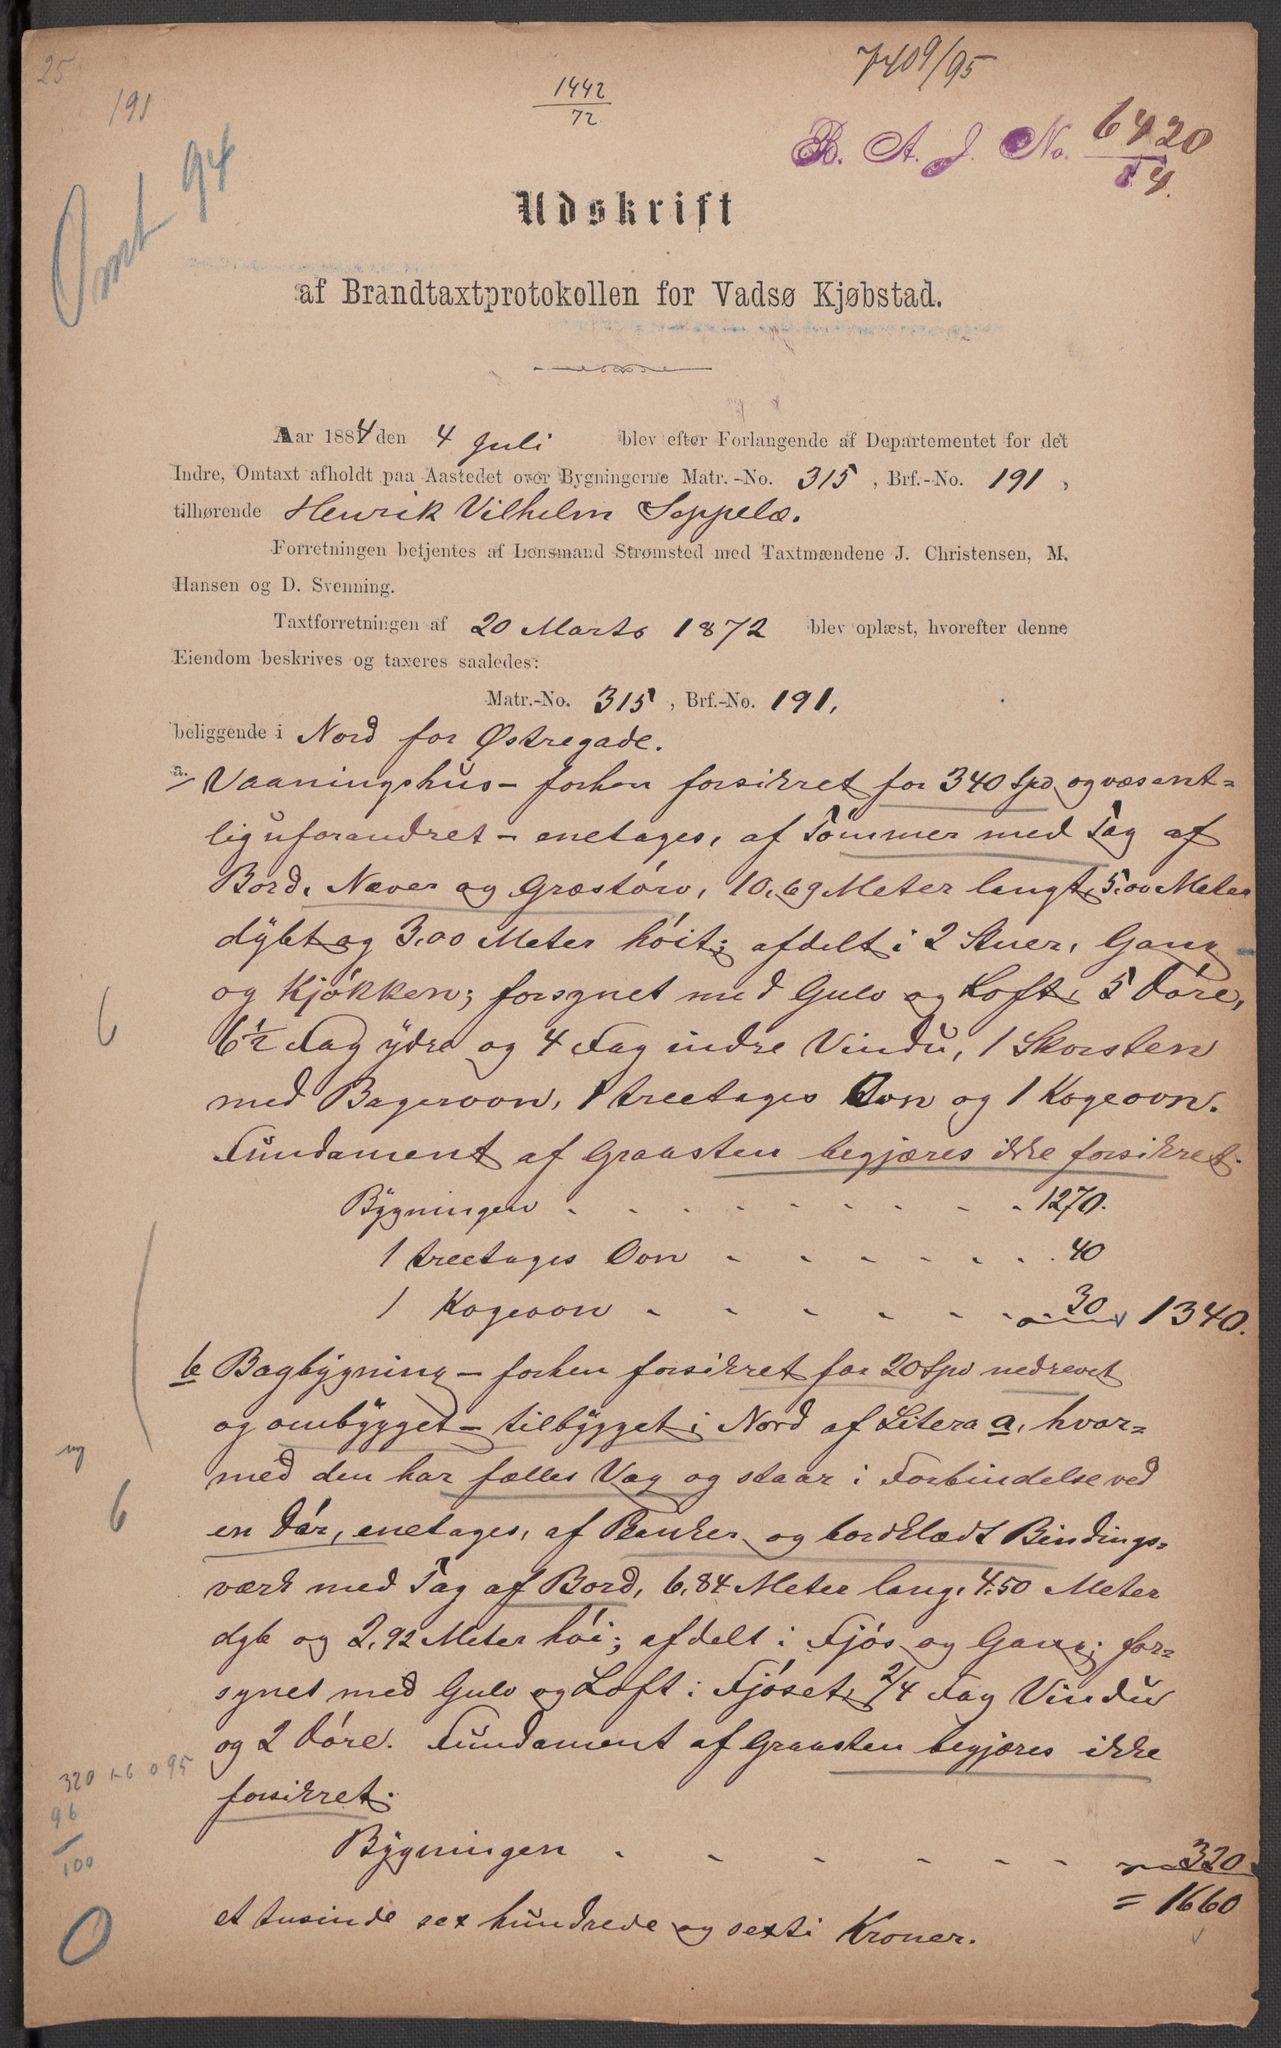 25
191
1442
72
7409/95
B. A. J. No. 6420
84.
Omt 94
Udskrift
af Brandtaxtprotokollen for Vadsø Kjøbstad.
Aar 1884 den 4 Juli blev efter Forlangende af Departementet for det
Indre, Omtaxt afholdt paa Aastedet over Bygningerne Matr.-No. 315, Brf.-No. 191,
tilhørende Henrik Vilhelm Seppelæ.
Forretningen betjentes af Lensmand Strømsted med Taxtmændene J. Christensen, M.
Hansen og D. Svenning.
Taxtforretningen af 20 Marts 1872 blev oplæst, hvorefter denne
Eiendom beskrives og taxeres saaledes:
Matr.-No. 315, Brf.-No. 191.
beliggende i Nord for Østregade.
a. Vaaningshus - forhen forsikret for 340 Spd og væsent=
lig uforandret - enetages, af Tømmer med Tag af
Bord, Næver og Græstörv, 10,69 Meter langt, 5,00 Meter
dÿbt og 3,00 Meter höit; afdelt i 2 Stuer, Gang
og Kjökken; forsynet med Gulv og Loft, 5 Döre,
6½ Fag ÿdre og 4 Fag indre Vindu, 1 Skorsten
med Bagerovn, 1 treetages Ovn og 1 Kogeovn.
6
Fundament af Graasten begjæres ikke forsikret.
Bÿgningen . . . . . . . . . 1270.
1 treetages Ovn . . . . . . . 40
1 Kogeovn . . . . . . . 30 1340.
b Bagbÿgning - forhen forsikret for 20 Spd nedrevet
og ombÿgget - tilbÿgget i Nord af Litera a, hvor=
ny
med den har fælles Væg og staar i Forbindelse ved
6
en Dör, enetages, af Planker og bordklædt Bindings=
værk med Tag af Bord, 6,84 Meter lang, 4,50 Meter
dyb og 2,92 Meter höi; afdelt i Fjös og Gang; for=
synet med Gulv og Loft i Fjöset, 2/4 Fag Vindu
og 2 Döre. Fundament af Graasten begjæres ikke
forsikret.
320 + 6 0 95
96
100
Bÿgningen . . . . . . 320
= 1660
et tusinde sex hundrede og sexti Kroner.
0